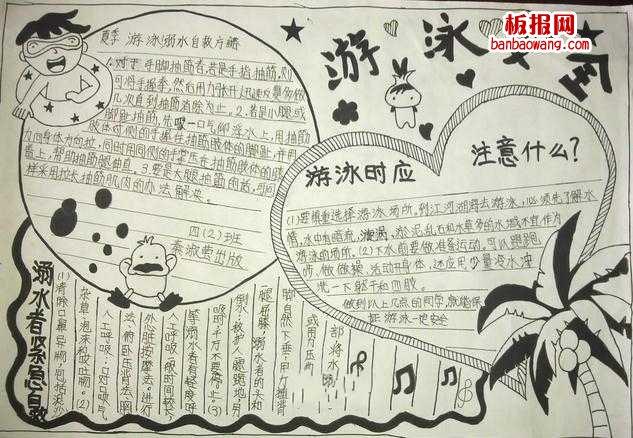 板报网
banbaowang.com
游泳安全
夏季游泳溺水自救方法
1.对于手脚抽筋者,若是手指抽筋,则
可将手握拳,然后用力张开,迅速反复多做
几次,直到抽筋消除为止。2.若是小腿或
脚趾抽筋,先吸一口气仰浮水上,用抽筋
肢体对侧的手握住抽筋肢体的脚趾,并用
力向身体方向拉,同时用同侧的手掌压在抽筋肢体的膝
盖上,帮助抽筋腿伸直。3.要是大腿抽筋的话,可同
样采用拉长抽筋肌肉的办法解决。
四(2)班
出版
游泳时应
注意什么?
(1)要慎重选择游泳场所。到江河湖海去游泳,必须先了解水
情,水中有暗流、漩涡、淤泥、乱石和水草多的水域不宜作为
游泳的场所。(2)下水前要做准备运动,可以跑跑
步,做做操,活动开身体,还应用少量冷水冲
洗一下躯干和四肢。
做到以上几点的同学,就能保
证游泳一定安全
溺水者紧急自救
(1)清除口鼻
杂草
呕吐物。(2)
人工呼吸:口对口吸气
法、俯卧压背法、
心脏按摩法。进行
人工呼吸
要溺水者有轻度呼
吸时千万不要停止。(3)
倒水:救护人
腿屈膝,溺水者的头和
脚自然下垂,
或用力压
部,将水